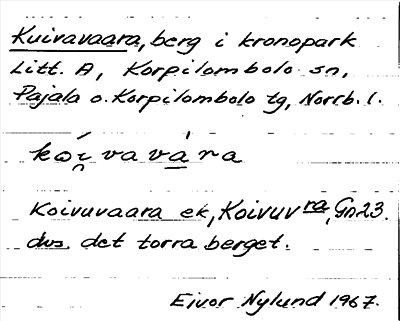 Kuivavaara, berg i kronopark
Litt. A, Korpilombolo sn,
Pajala o. Korpilombolo tg, Norrb. l.
koi̯vavára
Koivuvaara ek, Koivuvra, Gn23.
dvs. det torra berget.
Eivor Nylund 1967.